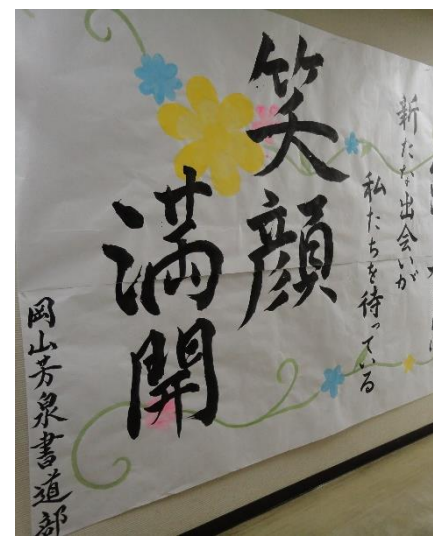 新たな出会いが
私たちを待っている
笑顔
満開
岡山芳泉書道部